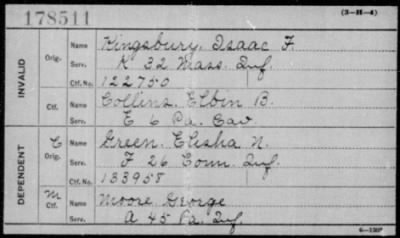 178511
(3-H-4)
INVALID
Orig. Name Kingsbury, Isaac F.
Serv. K 32 Mass. Inf.
Ctf. No. 122750
Ctf. Name Collins, Elbin B.
Serv. E 6 Pa. Cav
DEPENDENT
C Orig. Name Green, Elisha N.
Serv. F 26 Conn. Inf.
Ctf. No. 133958
M Ctf. Name Moore George
Serv. A 45 Pa. Inf.